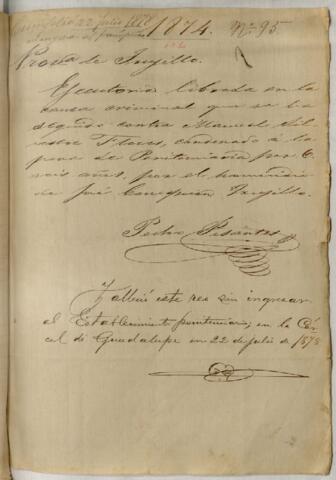 Cumplió 22 Julio 1878 1874. No. 95
Prova. de Trujillo.
Ejecutoria librada en la
causa criminal que se ha
seguido contra Manuel Sil
vestre Flores, condenado á la
pena de Penitenciaría por
seis años, por el homicidio
de José Trujillo.
Pedro Pisantes
Falleció este reo sin ingresar
al Establecimiento penitenciario, en la Cár
cel de Guadalupe en 22 de julio de 1878